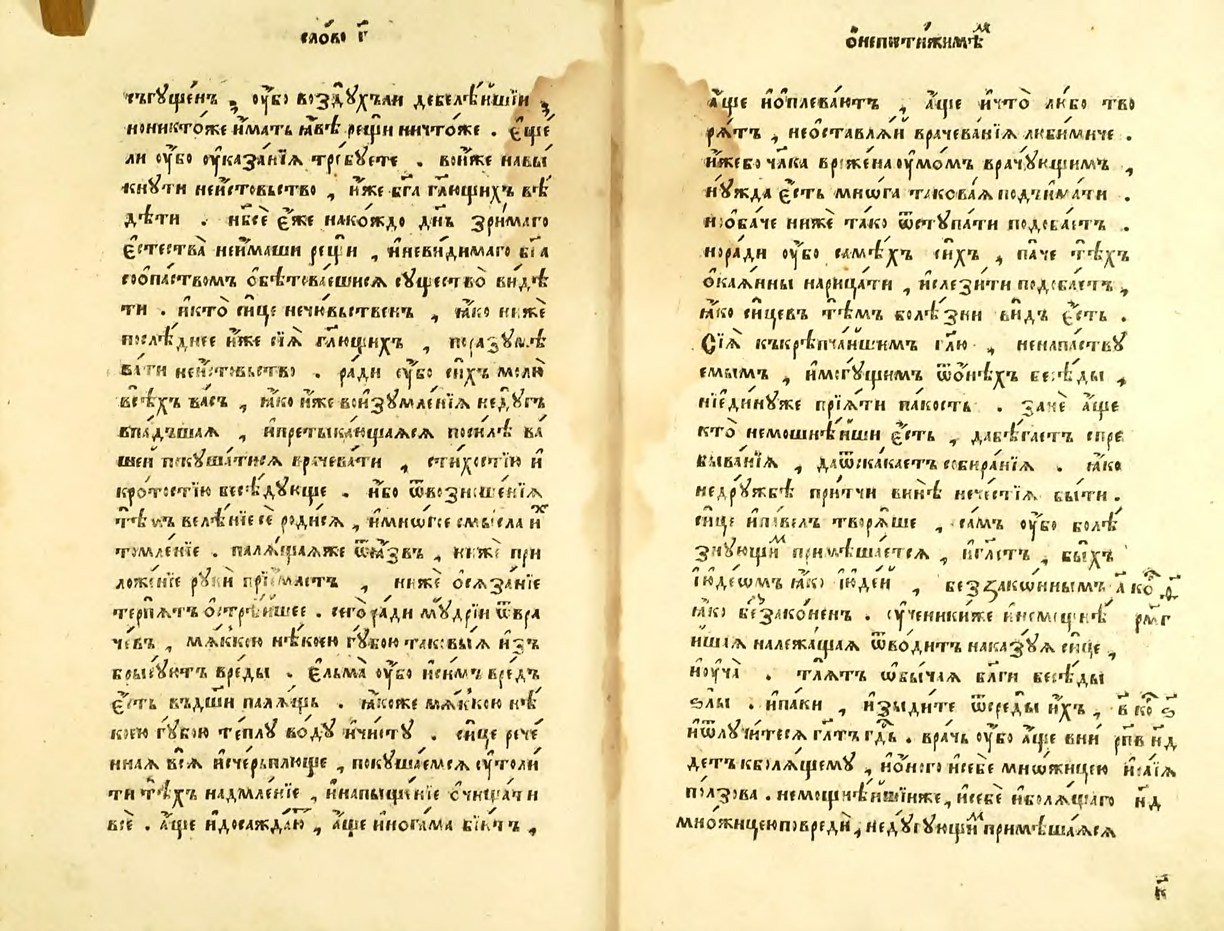 сло́во г҃
съгуще́нъ , ᲂу҆́бо возд́ꙋхъли дебелѣ́йшїи ,
ноникто́же и҆́мать ꙗ҆́вѣ рещѝ ничто́же . є҆ще́
ли ᲂу҆́бо ᲂу҆каза́нїѧ тре́буете . вои҆́же навы́
кнути неи́стовьство , и҆́же бг҃а гл҃ющихъ вѣ́
дѣти . нб҃се є҆́же нако́ждо дн҃ь зри́маго
є҆стества̀ неи҆́маши рещѝ , и҆неви́димаго бг҃а
сᲂо҆па́ствомъ ѻ҆бѣтова́вшисѧ существо̀ ви́дѣ
ти . и҆кто̀ си́це нечю́вьственъ , ꙗ҆́ко нижѐ
послѣ́днее и҆́же сїѧ̀ гл҃ющихъ , поразꙋмѣ
ва́ти неи́стовьство . ра́ди ᲂу҆́бо си́хъ молю̀
всѣ́хъ ва́съ , ꙗ҆́ко и҆́же вои҆зꙋмле́нїѧ недꙋ́гъ
впа́дъшаѧ , и҆претыка́ющаѧсѧ поси́лѣ ва́
шей покуша́тисѧ врачева́ти , сти́хостїю и҆
кро́тостїю бесѣ́дующе . и҆́бо ѿвозноше́нїѧ
тѣ́мъ велѣ́нїе сѐ роди́сѧ , и҆мно́гое смы́сла и҆́х
томле́нїе . палѧ́щаѧже ѿꙗ҆́звъ , нижѐ при
ложе́нїе рукѝ прїе́млютъ , нижѐ ѻ҆сѧза́нїе
терпѧ́тъ ѻ҆стрѣ́йшее . сего̀ ра́ди мꙋ́дрїи ѿвра
че́въ , мѧ́ккою нѣ́коею гу́бою таковы́ѧ и҆́зъ
брысуютъ вре́ды . є҆льма̀ ᲂу҆́бо и҆си́мъ вре́дъ
є҆́сть въдш҃и палѧ́щь . ꙗ҆́коже мѧ́ккою нѣ́
коею гу́бою те́плу во́ду и҆чи́сту . си́це рече́
ннаѧ всѧ̀ и҆сче́рплюще , покуша́емсѧ сутоли
ти тѣ́хъ надмле́нїе , и҆напыще́нїе ѻ҆чища́ти
всѐ . а҆́ще и҆досажда́ю҆тъ , а҆́ще и҆нога́ма бїю́тъ ,
ѻ҆непости́жимѣм
а҆́ще и҆ѻ҆плева́ютъ , а҆́ще и҆что̀ ли́бо тво
рѧ́тъ , неѻ҆ставлѧ́й врачева́нїѧ люби́миче .
и҆́жебо чл҃ка вреже́на ᲂу҆мо́мъ врачу́ющимъ ,
ну́жда є҆́сть мно́га таковаѧ подъи́мати .
и҆ѻ҆ба́че нижѐ та́ко ѿступа́ти подоба́етъ .
нора́ди ᲂу҆́бо самѣ́хъ си́хъ , па́че тѣ́хъ
ѻ҆каѧ́нны нарица́ти , и҆слези́ти подоба́етъ ,
ꙗ҆́ко си́цевъ тѣ́мъ болѣ́зни ви́дъ є҆́сть .
Сїѧ̀ къкрѣпча́йшимъ гл҃ю , ненапа́ству
емымъ , и҆могу́щимъ ѿѻ҆нѣ́хъ бесѣ́ды ,
нїеди́нуже прїѧ́ти па́кость . занѐ а҆́ще
кто̀ немощнѣ́йши є҆́сть , дабѣ́гаетъ спре
быва́нїѧ , даѿска́каетъ собира́нїѧ . ꙗ҆́ко
недру́жбѣ при́тчи винѣ̀ нече́стїѧ бы́ти .
си́це и҆па́велъ творѧ́ше , са́мъ ᲂу҆́бо болѣ́
знующим примѣша́етсѧ , и҆гл҃етъ , бы́хъ
і҆юде́ѡмъ ꙗ҆́ко і҆юде́й , беззако́ннымъ
ꙗ҆́ко беззако́ненъ . ᲂу҆ченики́же и҆немощнѣ́
йшаѧ належа́щаѧ ѿво́дитъ наказу́ѧ си́це ,
и҆ᲂу҆ча̀ . тлѧ́тъ ѡ҆бы́чаѧ бл҃ги бесѣ́ды
ѕлы̀ . и҆па́ки , и҆зыди́те ѿсреды̀ и҆́хъ ,
и҆ѿлучи́тесѧ гл҃етъ гд҃ь . вра́чь ᲂу҆́бо а҆́ще вни́
детъ кболѧ́щему , и҆ѻ҆ного и҆себѐ мно́жицею
по́лзова . немощнѣ́йшїйже , и҆себѐ и҆болѧ́щаго
мно́жицею повредѝ , недꙋ́гующим примѣша́ѧсѧ
а҃ ко ѳ҃
рм҃г
в҃ ко ѕ҃
рп҃в н҃д
и҆са́їѧ
н҃д
к҃